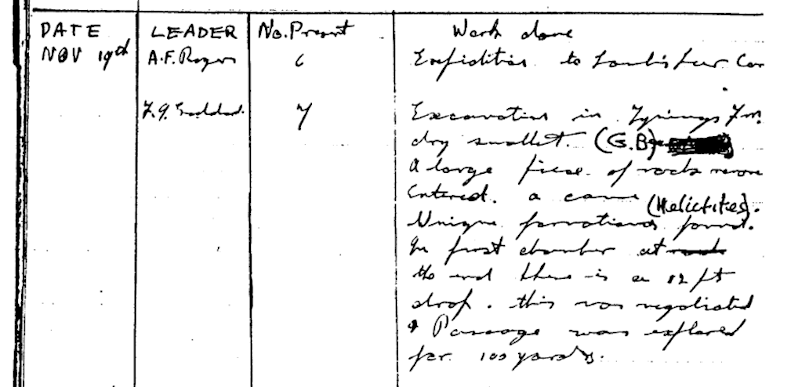 DATE LEADER No. Present Work done
NOV 19th A.F. Rogers 6 Expidition to Lamb's Lair Cav
F.G. Goddard. 7 Excavation in Tynings Fm.
dry swallet. (G.B)
A large piece of rock remove
Entered. a cave
(Helictites).
Unique formations found.
In first chamber at
the end there is a 12 ft
drop. this was negotiated
& Passage was explored
for 100 yards.